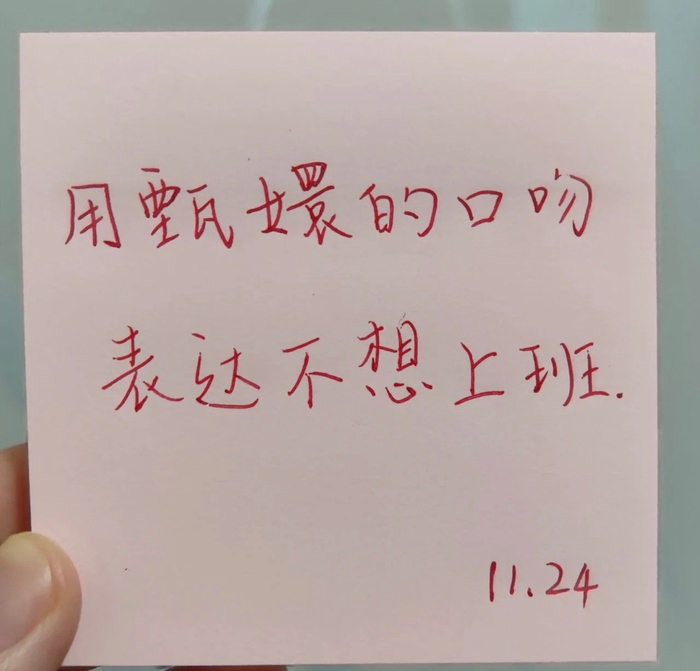 用甄嬛的口吻
表达不想上班.
11.24